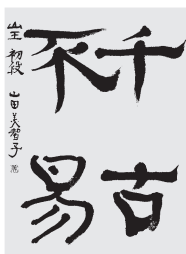 千古
不易
初段 山田美智子